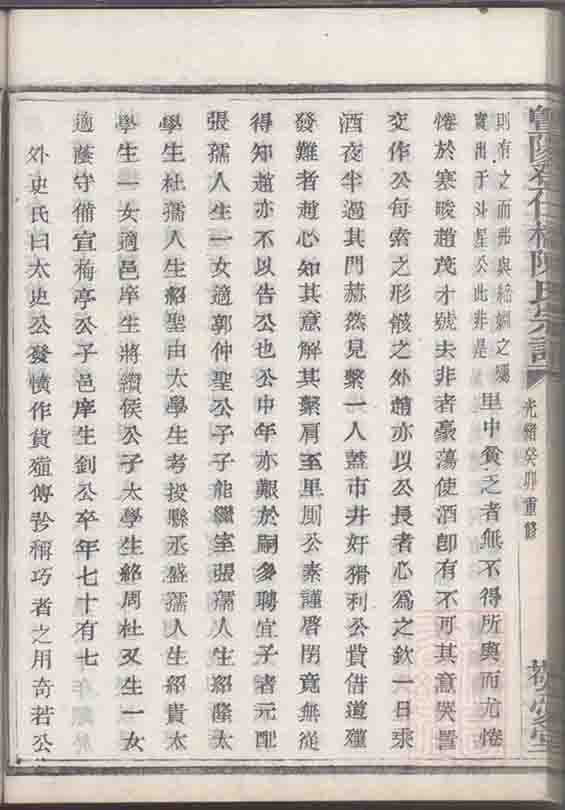 陽羨任橋陳氏宗譜
光緒癸卯重修
則有之而弗與絕姻之屬
實出于斗星公此非是
里中貧乏者無不得所與而尤惓
惓於寒畯趙茂才虓夫非者豪蕩使酒卽有不可其意哭詈
交作公每索之形骸之外趙亦以公長者心爲之欽一日乘
酒夜半過其門赫然見繫一人蓋市井奸猾利公貲借道殣
發難者趙心知其意解其繫肩至里厠公素謹啓閉竟無從
得知趙亦不以告公也公中年亦艱於嗣多聘宜子諸元配
張孺人生一女適郭仲聖公子子能繼室張孺人生紹隆太
學生杜孺人生紹聖由太學生考授縣丞盛孺人生紹貴太
學生一女適邑庠生蔣纘侯公子太學生銘周杜又生一女
適蔭守備宣梅亭公子邑庠生釗公卒年七十有七
外史氏曰太史公發憤作貨殖傳矜稱巧者之用奇若公